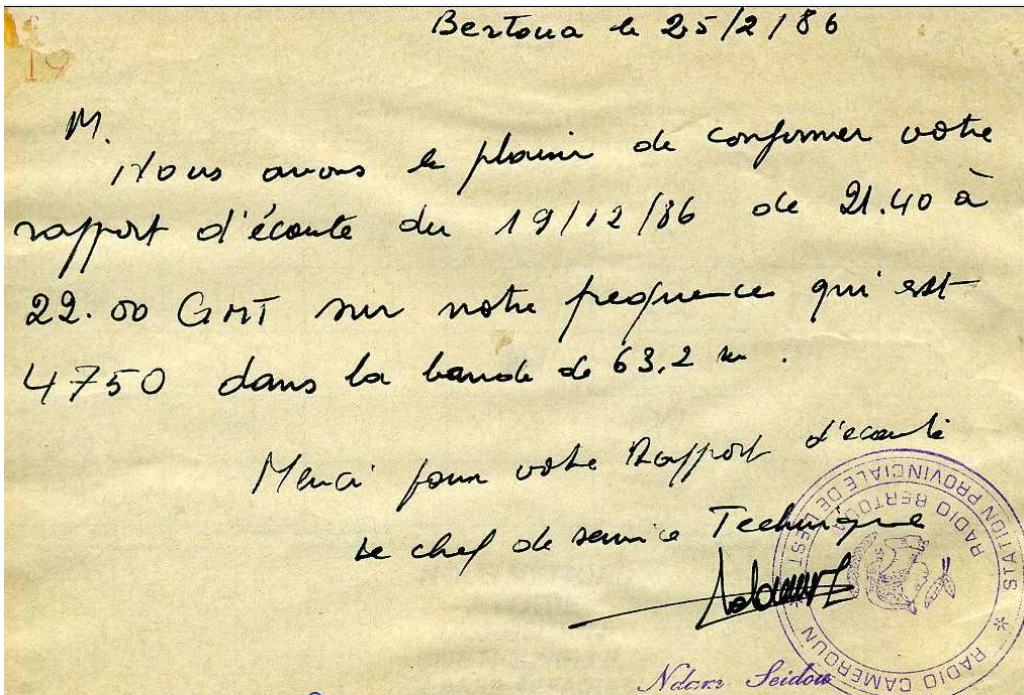 Bertoua le 25/2/86
19
M.
Nous avons le plaisir de confirmer votre
rapport d'écoute du 19/12/86 de 21.40 à
22.00 GMT sur notre frequence qui est
4750 dans la bande de 63,2 m.
Merci pour votre Rapport d'ecoute
Le chef de service Technique
STATION PROVINCIALE DE L'EST
RADIO BERTOUA
RADIO CAMEROUN
Ndam Seidou